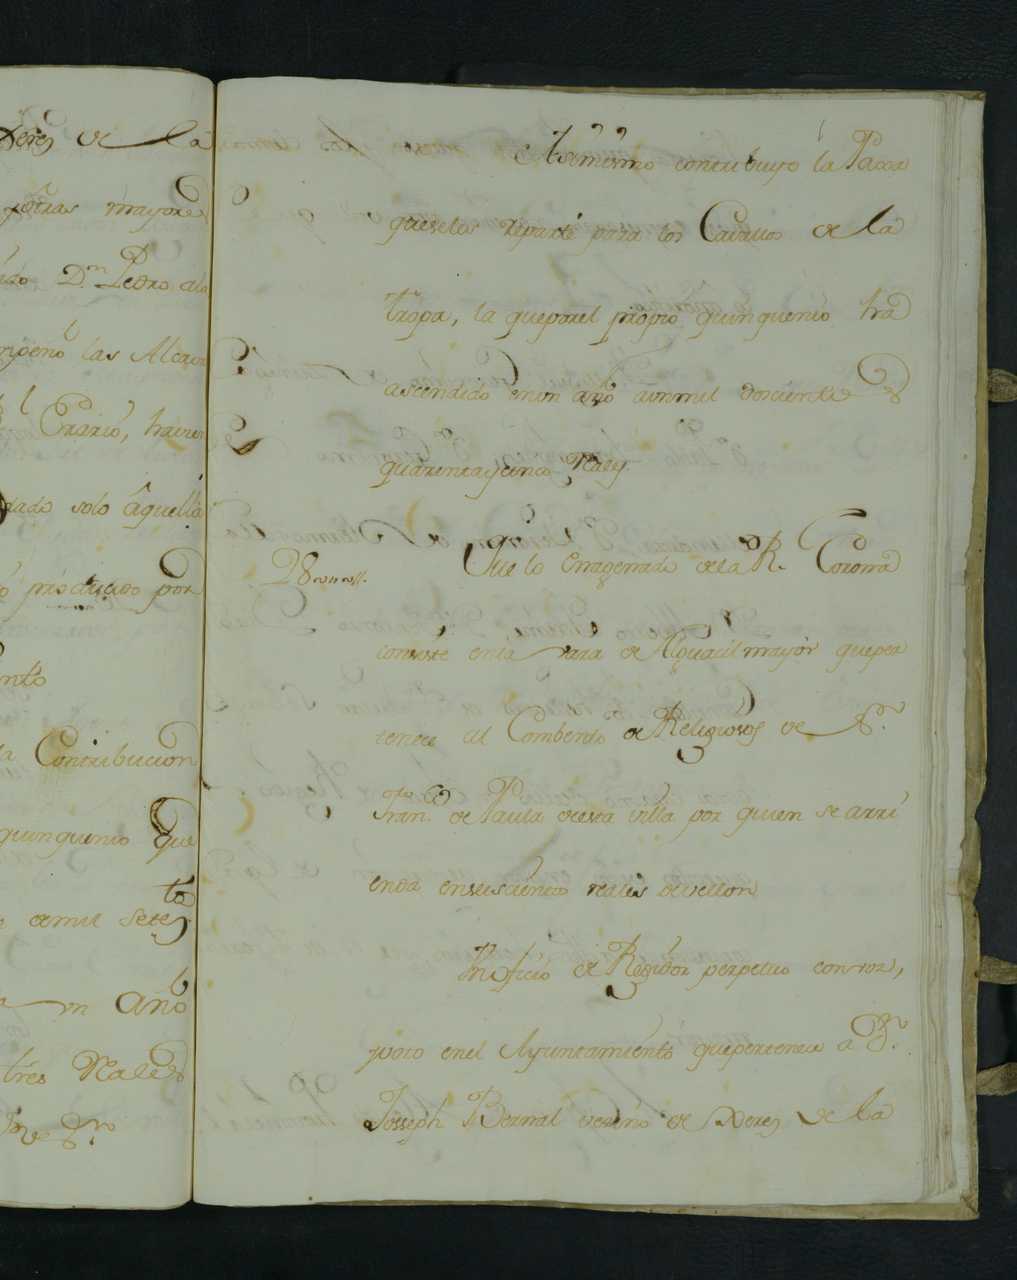 Xerez de la
y otras mayores
Dn. Pedro
las Alca
Erario, havien
dado solo aquella
producido por
ento
la Contribucion
quinquenio que
de mil setez.tos
un año
tres Reales
de Sn.
Asimismo contribuyó la Paxa
que se les reparte para los Cavallos de la
tropa, la que por el propio quinquenio ha
ascendido en un año a un mil doscientos
quarenta y cinco Rales
28 Que lo enagenado de la R. Corona
consiste en la vara de Alguacil mayor que per
tenece al Combento de Religiosos de Sn.
Fran.co de Paula de esta villa por quien se arri
enda en seiscientos reales de vellon
Un oficio de Regidor perpetuo con voz,
y voto en el Ayuntamiento que pertenece a Dn.
Joseph Bernal vezino de Xerez de la